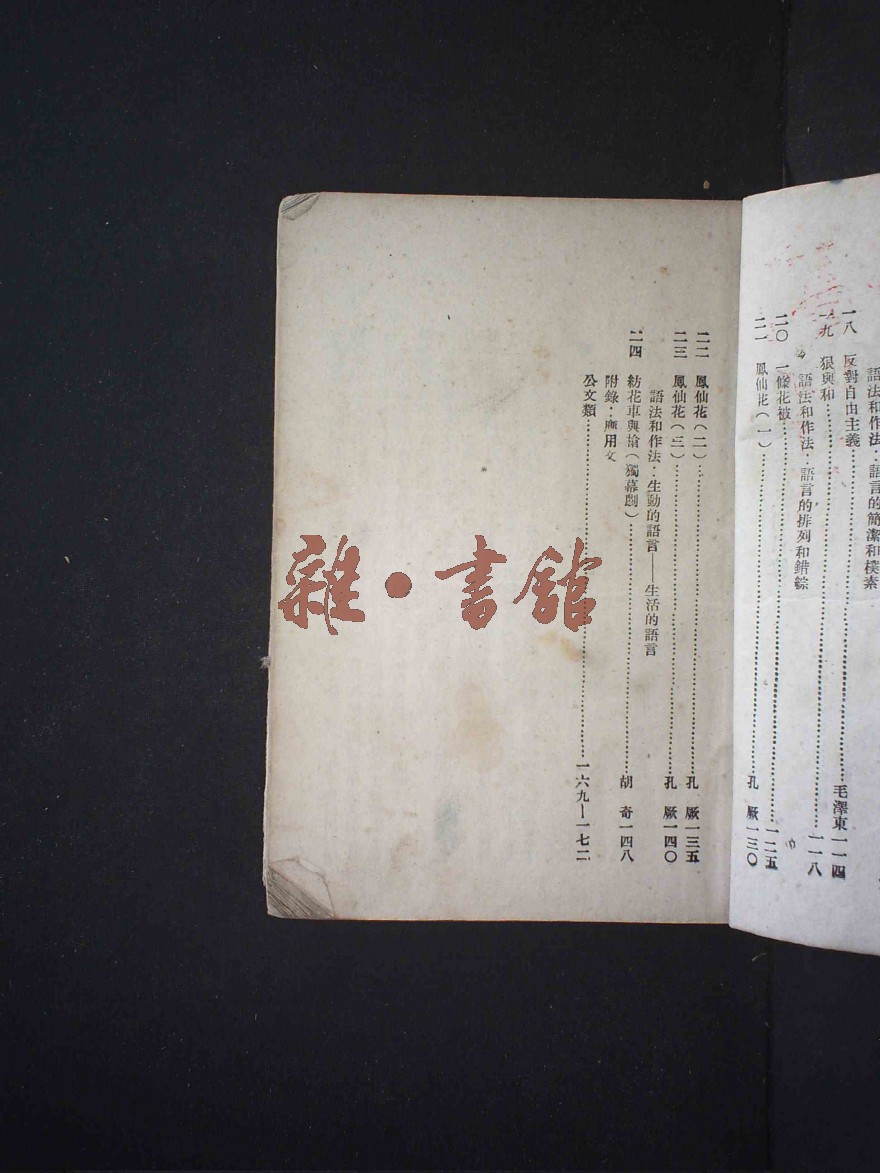 語法和作法：語言的簡潔和樸素
一八　反對自由主義……毛澤東一一四
一九　狠與和……一一八
語法和作法：語言的排列和錯綜
二〇　一條花被……一二五
二一　鳳仙花（一）……孔　厥一三〇
二二　鳳仙花（二）……孔　厥一三五
二三　鳳仙花（三）……孔　厥一四〇
語法和作法：生動的語言——生活的語言
二四　紡花車與搶（獨幕劇）……胡　奇一四八
附錄：應用文
公文類……一六九—一七二
雜·書館